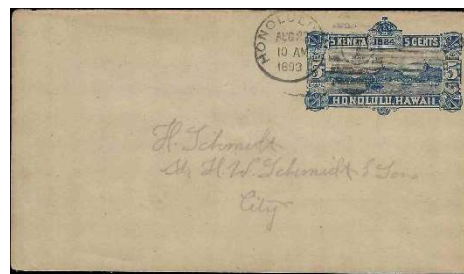 HONOLULU
AUG
10 AM
1893
5 KENETA 1884 5 CENTS
5 5
HONOLULU, HAWAII
H. Schmidt
H. W. Schmidt & Sons
City